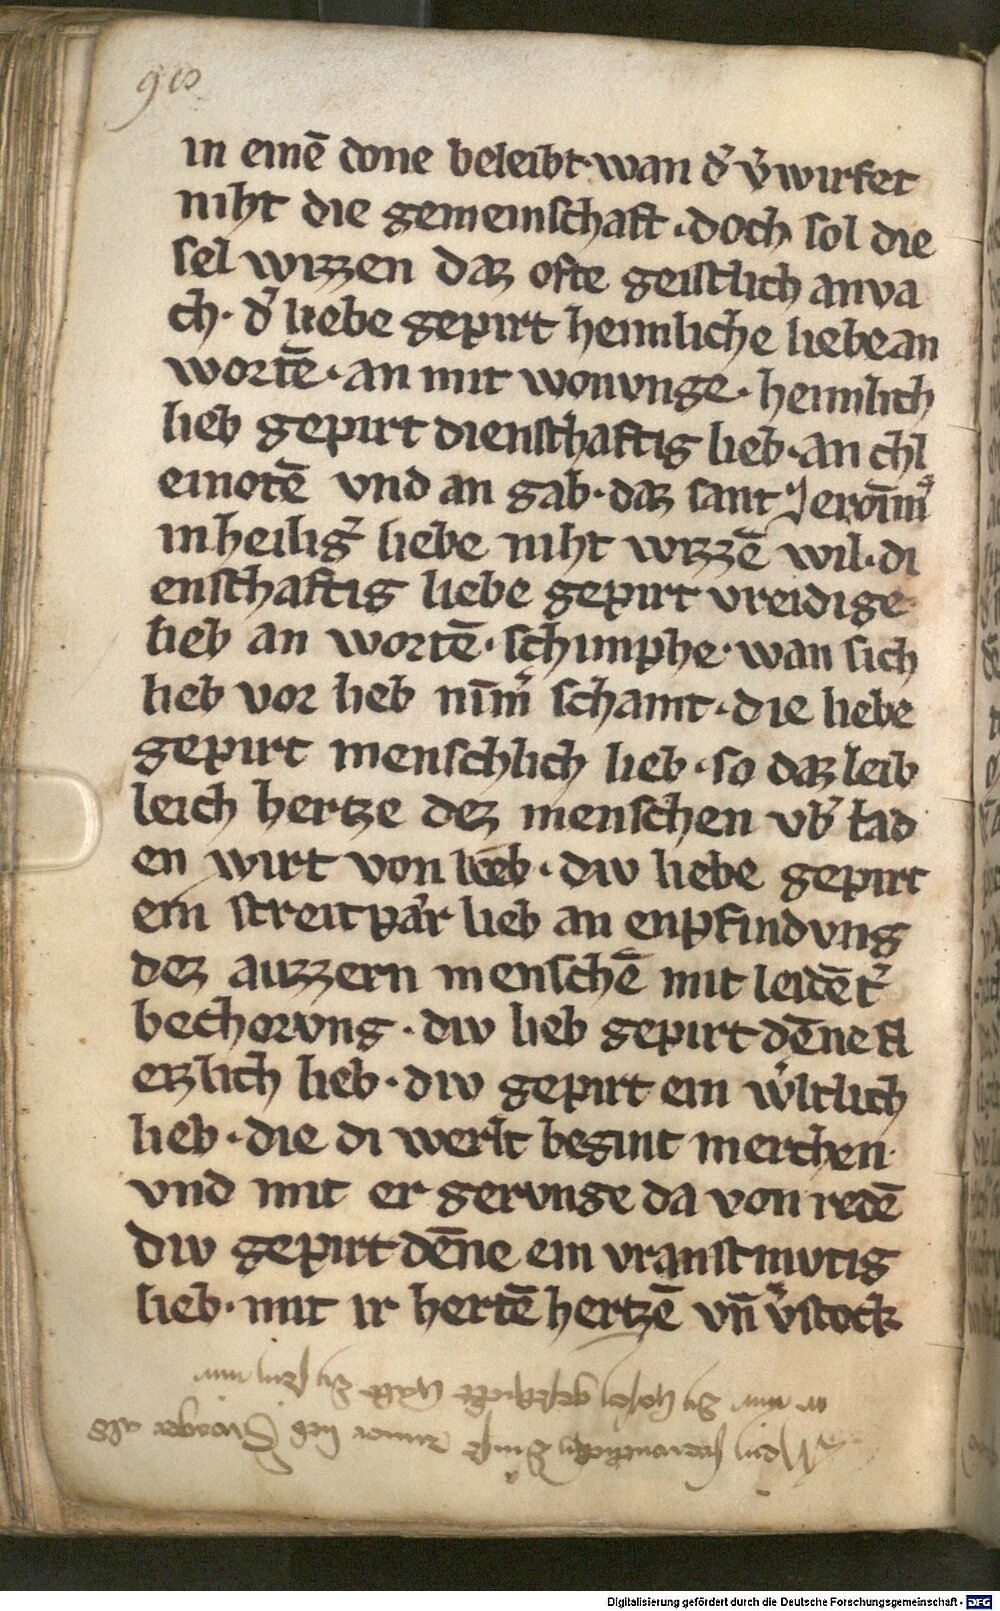 98
in einē done beleibt · wan d᷑ v᷑wirfet
niht die gemeinschaft · doch sol die
sel wizzen daz ofte geistlich anva
ch · d᷑ liebe gepirt heimliche liebe an
wortē · an mit wonvnge · heimlich
lieb gepirt dienschaftig lieb · an chl
einotē vnd an gab · daz sant Jeronim᷒
in heilig᷑ liebe niht wizzē wil · di
enschaftig liebe gepirt vreidige
lieb an wortē · schimphe · wan sich
lieb vor lieb nīm᷑ schamt · die liebe
gepirt menschlich lieb · so daz leib
leich hertze dez menschen vb᷑ lad
en wirt von lieb · div liebe gepirt
ein streitpar lieb an enpfindvng
dez auzzern menschē mit leidēt᷑
bechorvng · div lieb gepirt dēne fl
ezlich lieb · div gepirt ein w᷑ltlich
lieb · die di werlt begint merchen
vnd mit er gervnge da von redē
div gepirt dēne ein vranstmvtig
lieb · mit ir hertē hertzē vn̄ v᷑stock
Digitalisierung gefördert durch die Deutsche Forschungsgemeinschaft - DFG